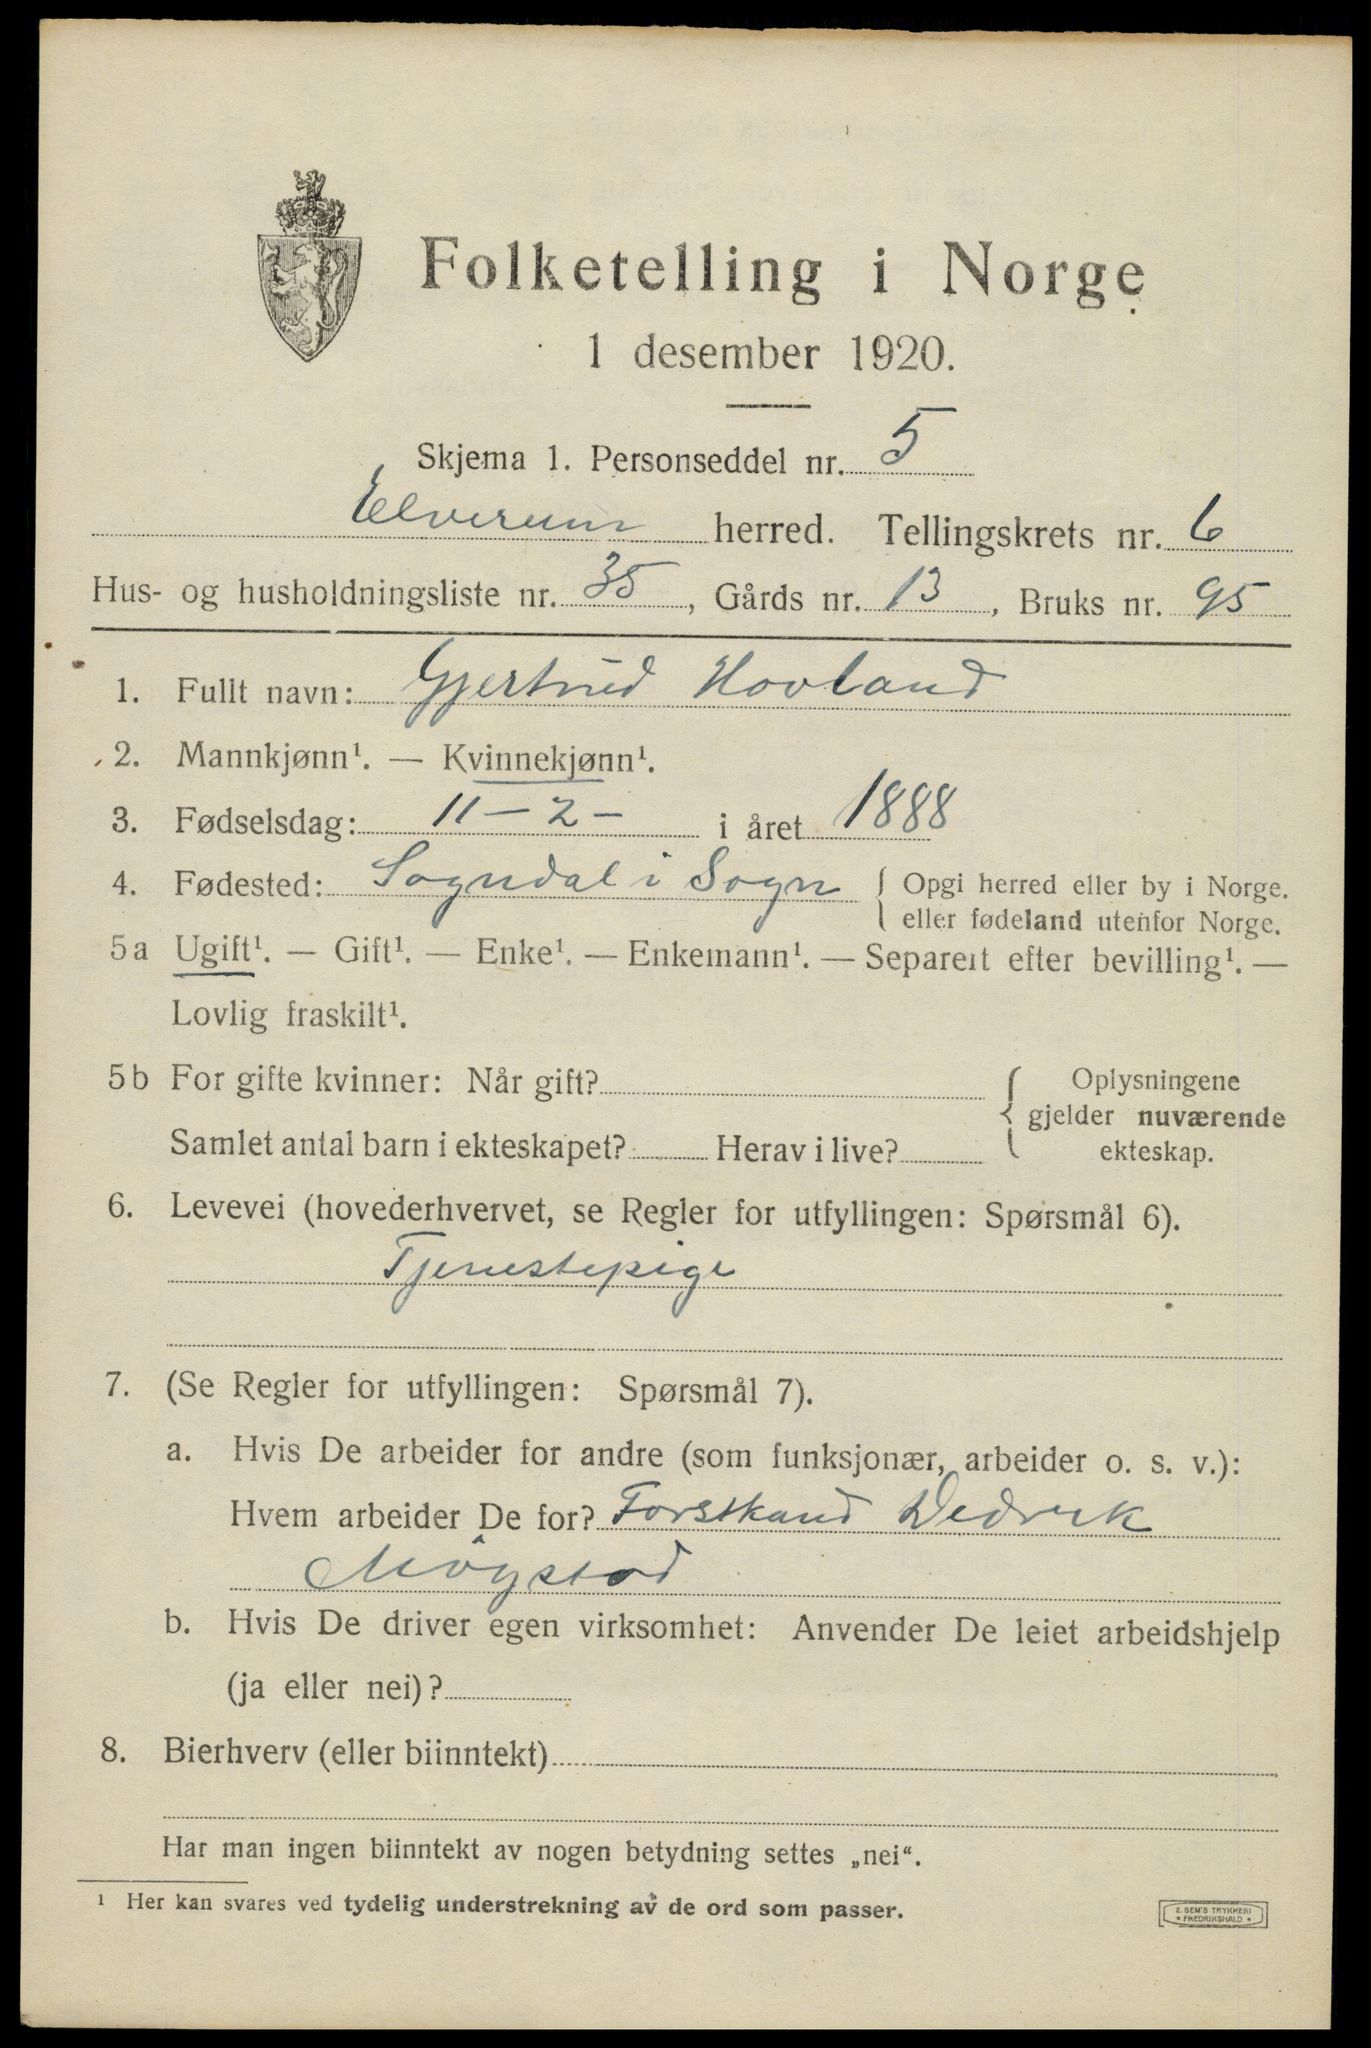 Folketelling i Norge
1 desember 1920.
Skjema 1. Personseddel nr. 5
Elverum herred. Tellingskrets nr. 6
Hus- og husholdningsliste nr. 35, Gårds nr. 13, Bruks nr. 95
1. Fullt navn: Gjertrud Hovland
2. Mannkjønn¹. — Kvinnekjønn¹.
3. Fødselsdag: 11-2- i året 1888
4. Fødested: Sogndal i Sogn { Opgi herred eller by i Norge.
eller fødeland utenfor Norge.
5a Ugift¹. — Gift¹. — Enke¹. — Enkemann¹. — Separert efter bevilling¹. —
Lovlig fraskilt¹.
5b For gifte kvinner: Når gift? { Oplysningene
gjelder nuværende
Samlet antal barn i ekteskapet? Herav i live? ekteskap.
6. Levevei (hovederhvervet, se Regler for utfyllingen: Spørsmål 6).
Tjenestepige
7. (Se Regler for utfyllingen: Spørsmål 7).
a. Hvis De arbeider for andre (som funksjonær, arbeider o. s. v.):
Hvem arbeider De for? Forstkand Dedrek
Møystad
b. Hvis De driver egen virksomhet: Anvender De leiet arbeidshjelp
(ja eller nei)?
8. Bierhverv (eller biinntekt)
Har man ingen biinntekt av nogen betydning settes „nei“.
¹ Her kan svares ved tydelig understrekning av de ord som passer.
E. SEM'S TRYKKERI
* FREDRIKSHALD *